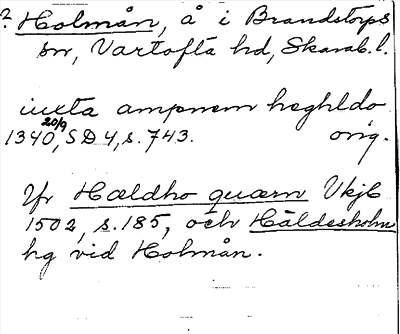 ? Holmån, å i Brandstorps
sn, Vartofta hd, Skarab. l.
iuxta ampnem heghldo
1340 20/9, SD 4, s. 743. orig.
Jfr Hældho quærn Vkjb
1502, s. 185, och Häldesholm
hg vid Holmån.